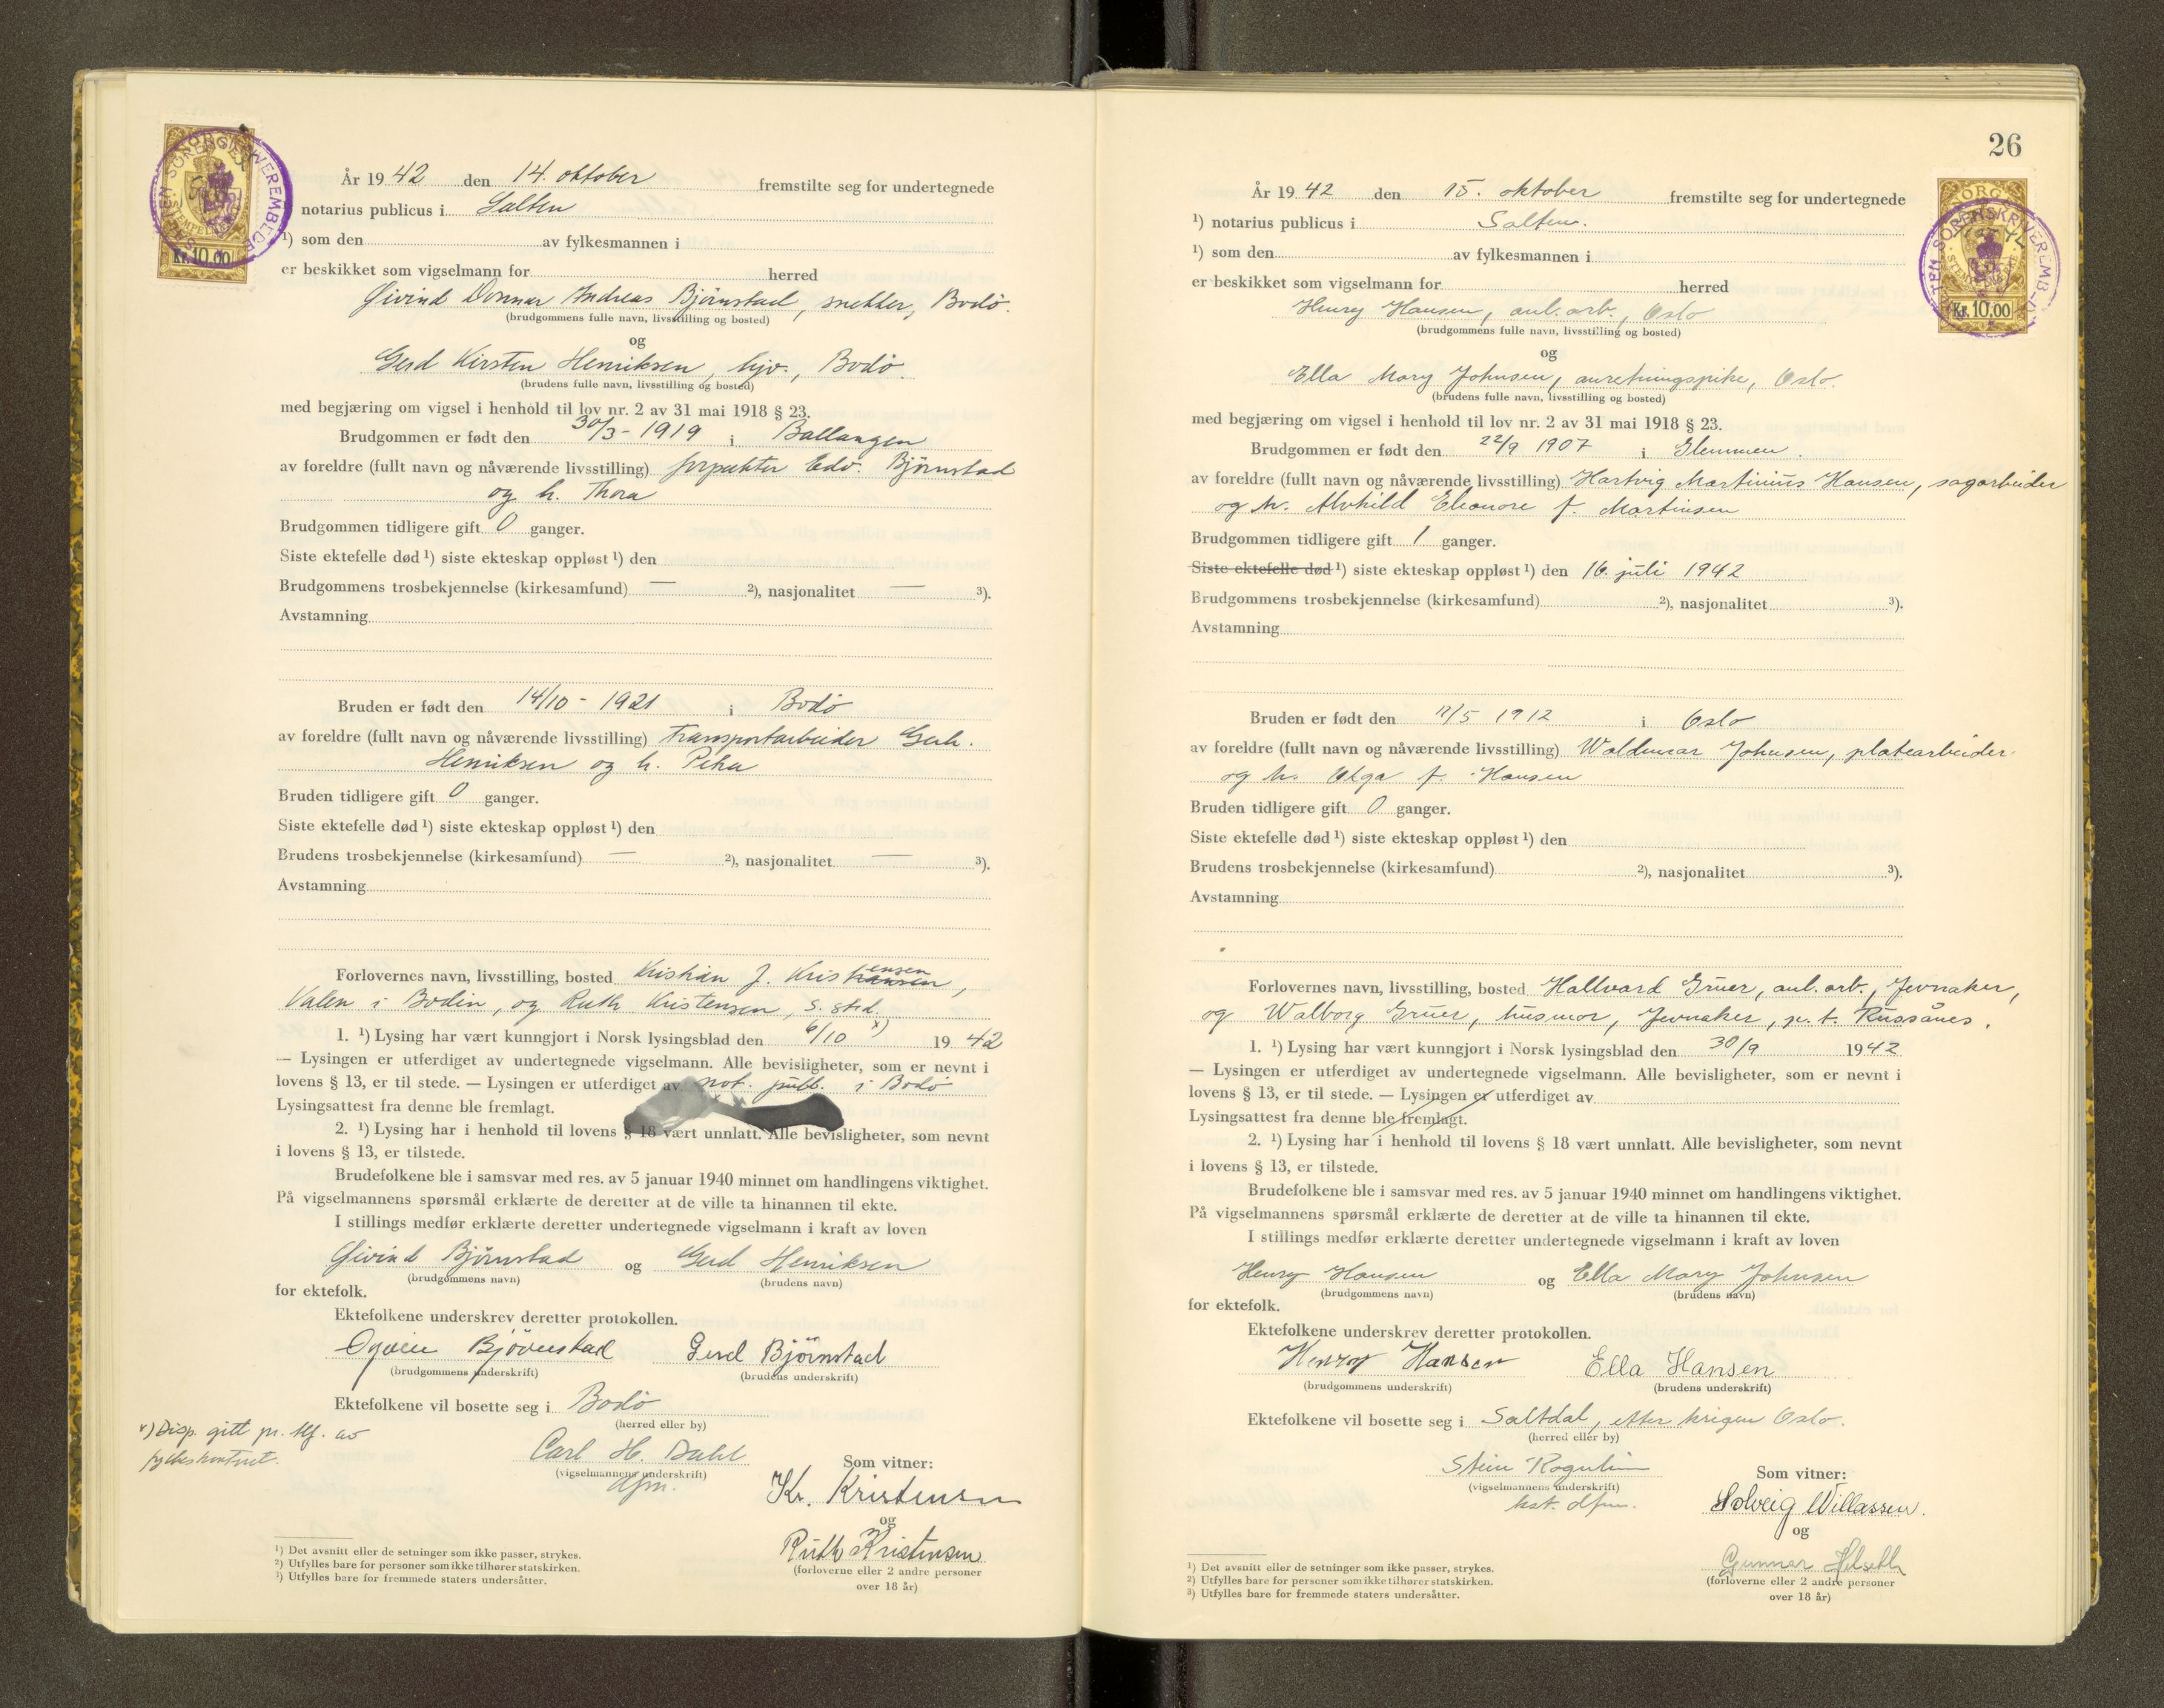 År 19 42 den 14. oktober fremstilte seg for undertegnede
notarius publicus i Salten
¹) som den av fylkesmannen i
er beskikket som vigselmann for herred
Øivind Donnar Andreas Björnstad, snekker, Bodö.
(brudgommens fulle navn, livsstilling og bosted)
og
Gerd Kirsten Henriksen, hjv., Bodö.
(brudens fulle navn, livsstilling og bosted)
med begjæring om vigsel i henhold til lov nr. 2 av 31 mai 1918 § 23.
Brudgommen er født den 30/3 - 1919 i Ballangen
av foreldre (fullt navn og nåværende livsstilling) forpakter Edv. Björnstad
og h. Thora
Brudgommen tidligere gift 0 ganger.
Siste ektefelle død ¹) siste ekteskap oppløst ¹) den
Brudgommens trosbekjennelse (kirkesamfund) — ²), nasjonalitet — ³).
Avstamning
Bruden er født den 14/10 - 1921 i Bodö
av foreldre (fullt navn og nåværende livsstilling) transportarbeider Gerh.
Henriksen og h. Petra
Bruden tidligere gift 0 ganger.
Siste ektefelle død ¹) siste ekteskap oppløst ¹) den
Brudens trosbekjennelse (kirkesamfund) — ²), nasjonalitet — ³).
Avstamning
Forlovernes navn, livsstilling, bosted Kristian J. Kristensen,
Valen i Bodin, og Ruth Kristensen, s. std.
1. ¹) Lysing har vært kunngjort i Norsk lysingsblad den 6/10 x) 19 42
— Lysingen er utferdiget av undertegnede vigselmann. Alle bevisligheter, som er nevnt i
lovens § 13, er til stede. — Lysingen er utferdiget av not. publ. i Bodö
Lysingsattest fra denne ble fremlagt.
2. ¹) Lysing har i henhold til lovens § 18 vært unnlatt. Alle bevisligheter, som nevnt
i lovens § 13, er tilstede.
Brudefolkene ble i samsvar med res. av 5 januar 1940 minnet om handlingens viktighet.
På vigselmannens spørsmål erklærte de deretter at de ville ta hinannen til ekte.
I stillings medfør erklærte deretter undertegnede vigselmann i kraft av loven
Øivind Björnstad og Gerd Henriksen
(brudgommens navn) (brudens navn)
for ektefolk.
Ektefolkene underskrev deretter protokollen.
Björnstad Gerd Björnstad
(brudgommens underskrift) (brudens underskrift)
Ektefolkene vil bosette seg i Bodö
(herred eller by)
x) Disp. gitt pr. tlf. av
fylkeskontoret.
Carl H. Dahl
(vigselmannens underskrift)
dfm.
Som vitner:
Kr. Kristensen
og
Ruth Kristensen
(forloverne eller 2 andre personer
over 18 år)
¹) Det avsnitt eller de setninger som ikke passer, strykes.
²) Utfylles bare for personer som ikke tilhører statskirken.
³) Utfylles bare for fremmede staters undersåtter.
NORGE
SALTEN SORENSKRIVEREMBEDE
Kr. 10.00
26
År 19 42 den 15. oktober fremstilte seg for undertegnede
¹) notarius publicus i Salten.
¹) som den av fylkesmannen i
er beskikket som vigselmann for herred
Henry Hansen, anl. arb., Oslo
(brudgommens fulle navn, livsstilling og bosted)
og
Ella Mary Johnsen, anretningspike, Oslo.
(brudens fulle navn, livsstilling og bosted)
med begjæring om vigsel i henhold til lov nr. 2 av 31 mai 1918 § 23.
Brudgommen er født den 22/9 1907 i Glemmen.
av foreldre (fullt navn og nåværende livsstilling) Hartvig Martinius Hansen, sagarbeider
og h. Alvhild Eleonore f. Martinsen
Brudgommen tidligere gift 1 ganger.
Siste ektefelle død ¹) siste ekteskap oppløst ¹) den 16. juli 1942
Brudgommens trosbekjennelse (kirkesamfund) ²), nasjonalitet ³).
Avstamning
Bruden er født den 11/5 1912 i Oslo
av foreldre (fullt navn og nåværende livsstilling) Waldemar Johnsen, platearbeider
og h. Olga f. Hansen
Bruden tidligere gift 0 ganger.
Siste ektefelle død ¹) siste ekteskap oppløst ¹) den
Brudens trosbekjennelse (kirkesamfund) ²), nasjonalitet ³).
Avstamning
Forlovernes navn, livsstilling, bosted Hallvard Gruer, anl. arb., Jevnaker,
og Walborg Gruer, husmor, Jevnaker, p. t. Russånes.
1. ¹) Lysing har vært kunngjort i Norsk lysingsblad den 30/9 1942
— Lysingen er utferdiget av undertegnede vigselmann. Alle bevisligheter, som er nevnt i
lovens § 13, er til stede. — Lysingen er utferdiget av
Lysingsattest fra denne ble fremlagt.
2. ¹) Lysing har i henhold til lovens § 18 vært unnlatt. Alle bevisligheter, som nevnt
i lovens § 13, er tilstede.
Brudefolkene ble i samsvar med res. av 5 januar 1940 minnet om handlingens viktighet.
På vigselmannens spørsmål erklærte de deretter at de ville ta hinannen til ekte.
I stillings medfør erklærte deretter undertegnede vigselmann i kraft av loven
Henry Hansen og Ella Mary Johnsen
(brudgommens navn) (brudens navn)
for ektefolk.
Ektefolkene underskrev deretter protokollen.
Henry Hansen Ella Hansen
(brudgommens underskrift) (brudens underskrift)
Ektefolkene vil bosette seg i Saltdal, etter krigen Oslo.
(herred eller by)
Stein Rognlien
(vigselmannens underskrift)
kst. dfm.
Som vitner:
Solveig Willassen.
og
Gunnar
(forloverne eller 2 andre personer
over 18 år)
¹) Det avsnitt eller de setninger som ikke passer, strykes.
²) Utfylles bare for personer som ikke tilhører statskirken.
³) Utfylles bare for fremmede staters undersåtter.
NORGE
Kr. 10.00